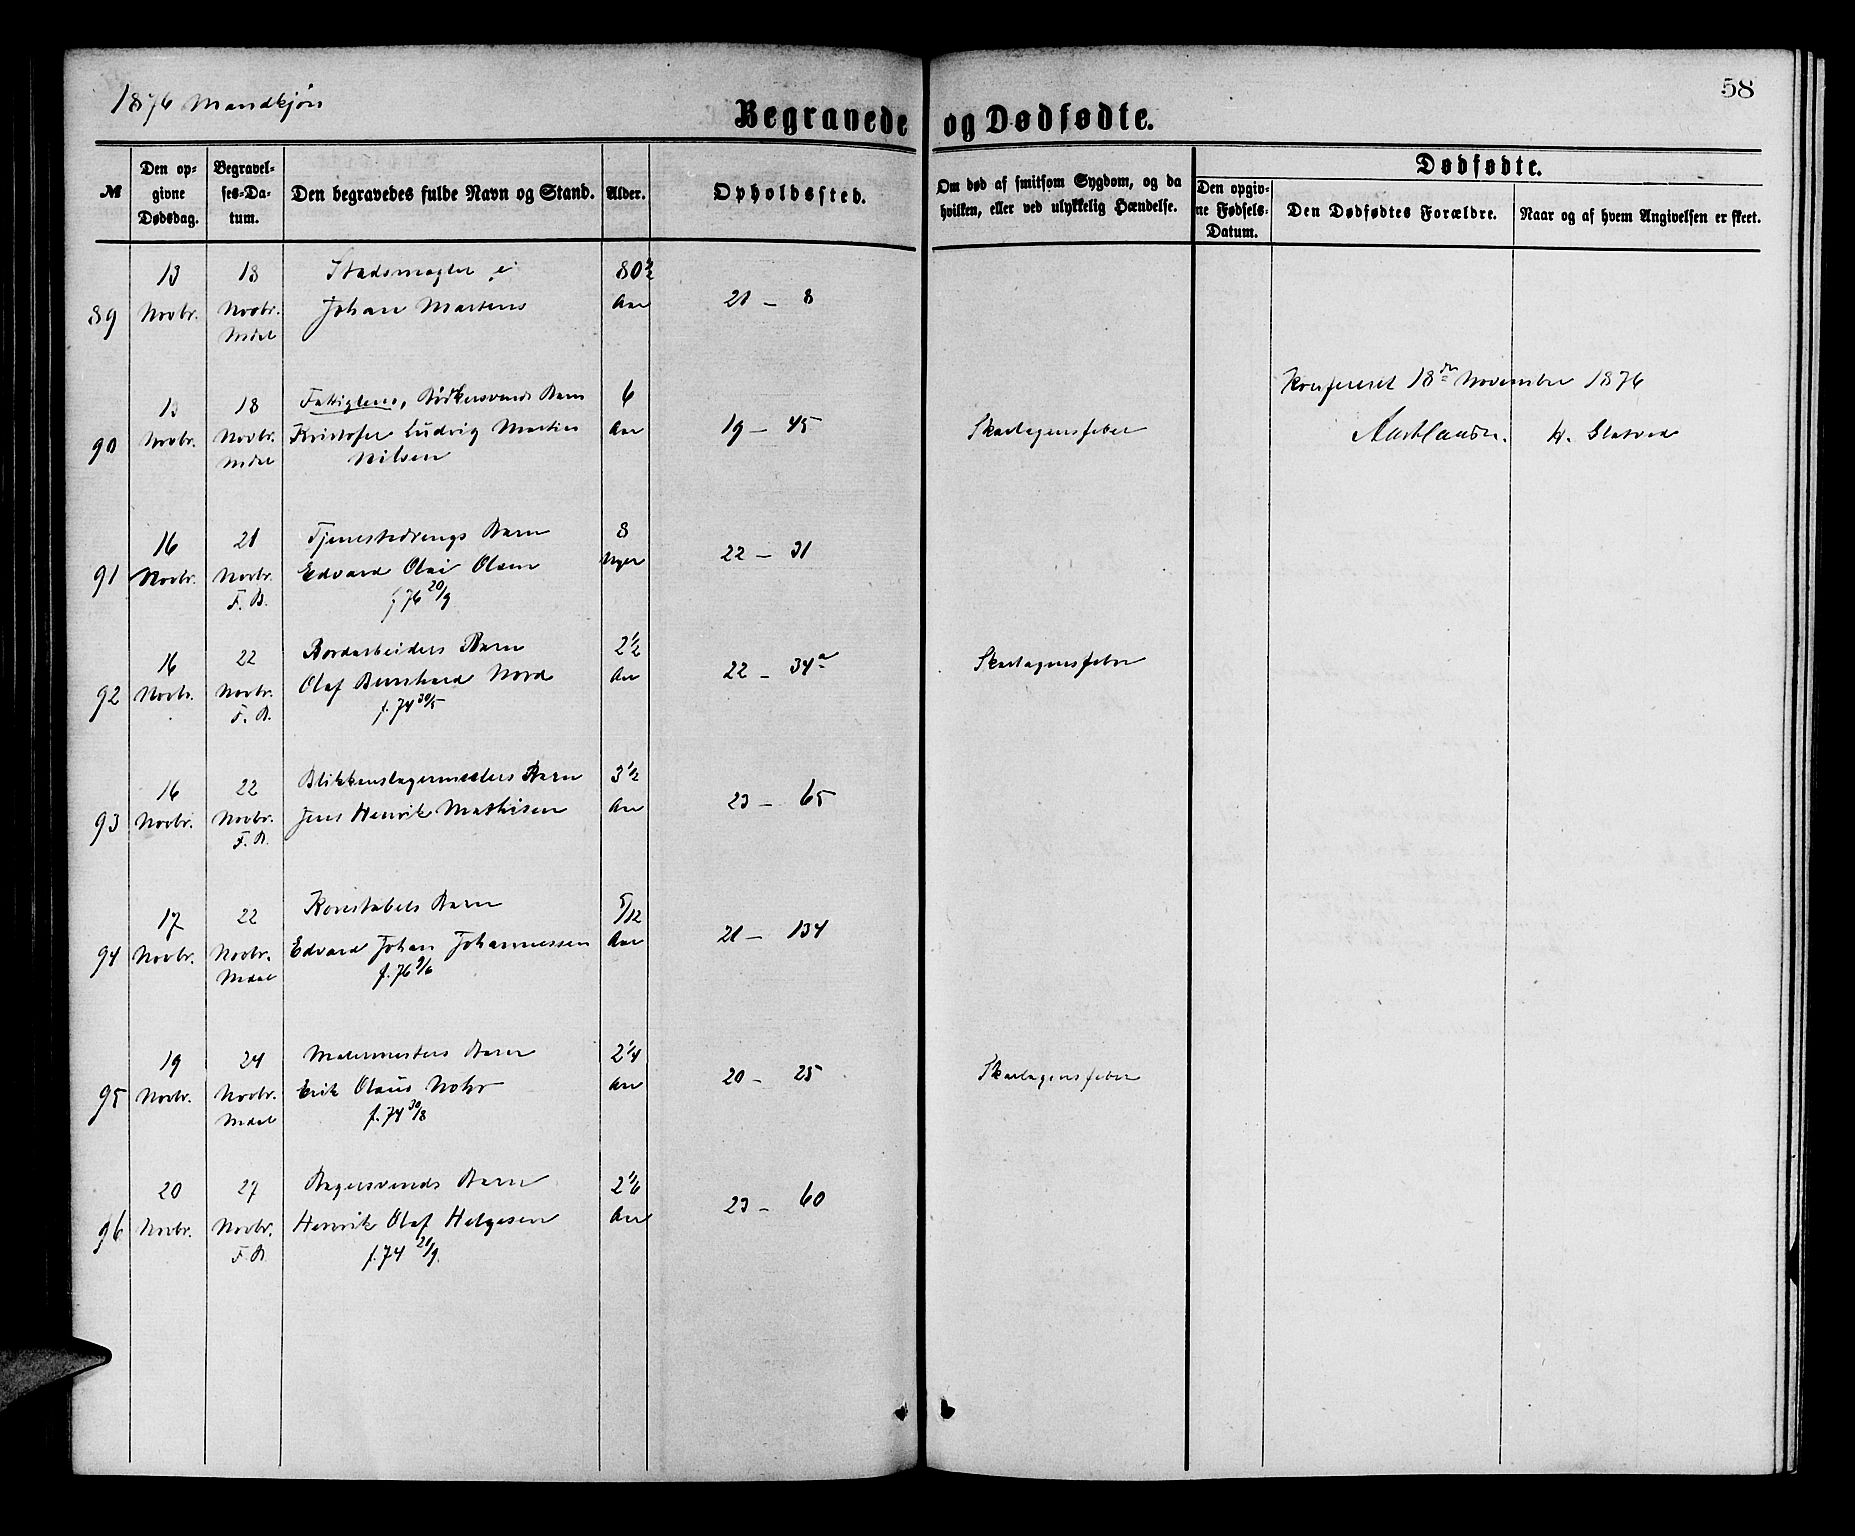 1876 Mandkjøn
58
Begravede og Dødfødte.
№
Den opgivne Dødsdag.
Begravelses-Datum.
Den begravedes fulde Navn og Stand.
Alder.
Opholdssted.
Om død af smitsom Sygdom, og da hvilken, eller ved ulykkelig Hændelse.
Dødfødte.
Den opgivne Fødsels-Datum.
Den Dødfødtes Forældre.
Naar og af hvem Angivelsen er skeet.
89
13 Novbr.
18 Novbr. Mdal
Stadsmægler
Johan Martens
80 1/2 Aar
21 – 8
Konfereret 18de November 1876
90
13 Novbr.
18 Novbr. Mdal
Fattiglem, Bødkersvends Barn
Kristofer Ludvig Martin
Nilsen
6 Aar
19 – 45
Skarlagensfeber
91
16 Novbr.
21 Novbr. F. B.
Tjenestedrengs Barn
Edvard Olai Olsen
f. 76 20/9
8 Uger
22 – 31
92
16 Novbr.
22 Novbr. F. B.
Bordarbeiders Barn
Olaf Bernhard Nord
f. 74 30/5
2 1/2 Aar
22 – 34a
Skarlagensfeber
93
16 Novbr.
22 Novbr. F. B.
Blikkenslagermesters Barn
Jens Henrik Mathisen
3 1/2 Aar
23 – 65
94
17 Novbr.
22 Novbr. Mdal
Konstabels Barn
Edvard Johan Johannessen
f. 76 9/6
5/12 Aar
21 – 134
95
19 Novbr.
24 Novbr. Mdal
Malermesters Barn
Erik Olaus Nohr
f. 74 30/8
2 1/4 Aar
20 – 25
Skarlagensfeber
96
20 Novbr.
27 Novbr. F. B.
Bagersvends Barn
Henrik Olaf Helgesen
f. 74 21/9.
2 1/6 Aar
23 – 60